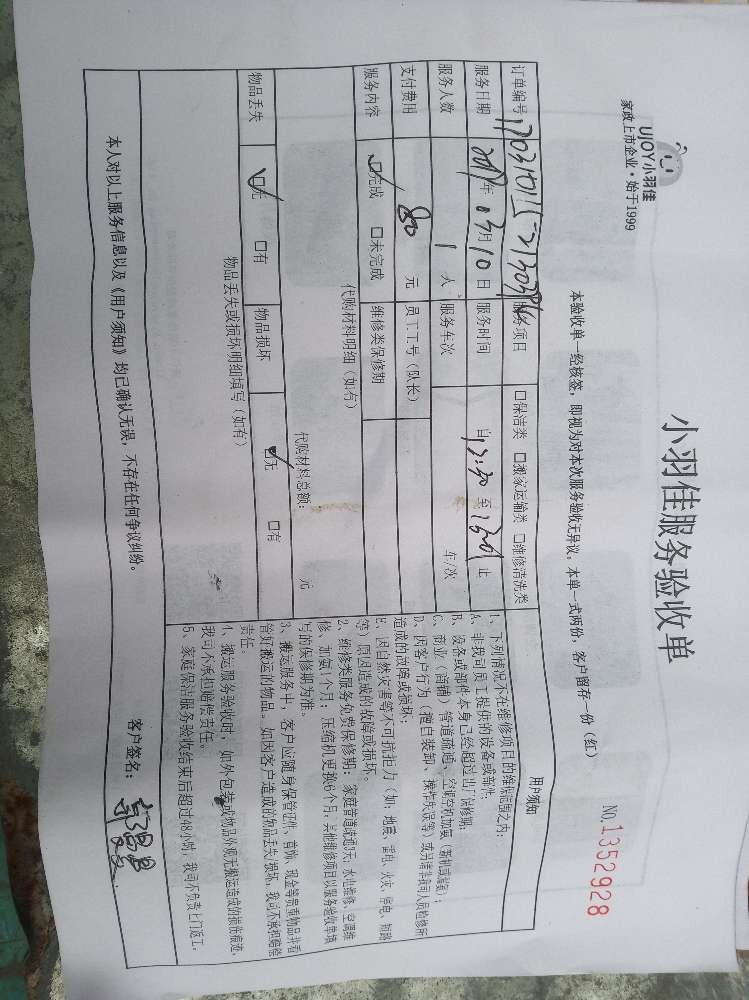 UJOY小羽佳
家政上市企业·始于1999
小羽佳服务验收单
NO.1352928
本验收单一经核签，即视为对本次服务验收无异议，本单一式两份，客户留存一份（红）
订单编号 服务项目 □保洁类 □搬家运输类 □维修清洗类
服务日期 年 03月10日 服务时间 自 至 止
服务人数 1 人 服务车次 车/次
支付费用 80 元 员工工号（队长）
服务内容 ☑完成 □未完成 维修类保修期
代购材料明细（如有）
代购材料总额： 元
物品丢失 ☑无 □有 物品损坏 ☑无 □有
物品丢失或损坏明细填写（如有）
用户须知
1、下列情况不在维修项目的维保范围之内：
A、非我司员工提供的设备或部件；
B、设备或部件本身已经超过出厂保修期；
C、商业（店铺）管道疏通、空调空机加氨（新机或漏氨）；
D、因客户行为（擅自装卸、操作失误等）或另请非我司人员检修所
造成的故障或损坏；
E、因自然灾害等不可抗拒力（如：地震、雷电、火灾、停电、短路
等）原因造成的故障或损坏。
2、维修类服务免费保修期：家庭管道疏通3天；水电维修、空调维
修、加氨1个月；压缩机更换6个月；其他维修项目以服务验收单填
写的保修期为准。
3、搬运服务中，客户应随身保管证件、首饰、现金等贵重物品并看
管好搬运的物品。如因客户造成的物品丢失/损坏，我司不承担赔偿
责任。
4、搬运服务验收时，如外包装或物品外观无搬运造成的损伤痕迹，
我司不承担赔偿责任。
5、家庭保洁服务验收结束后超过48小时，我司不负责上门返工。
本人对以上服务信息以及《用户须知》均已确认无误，不存在任何争议纠纷。
客户签名：